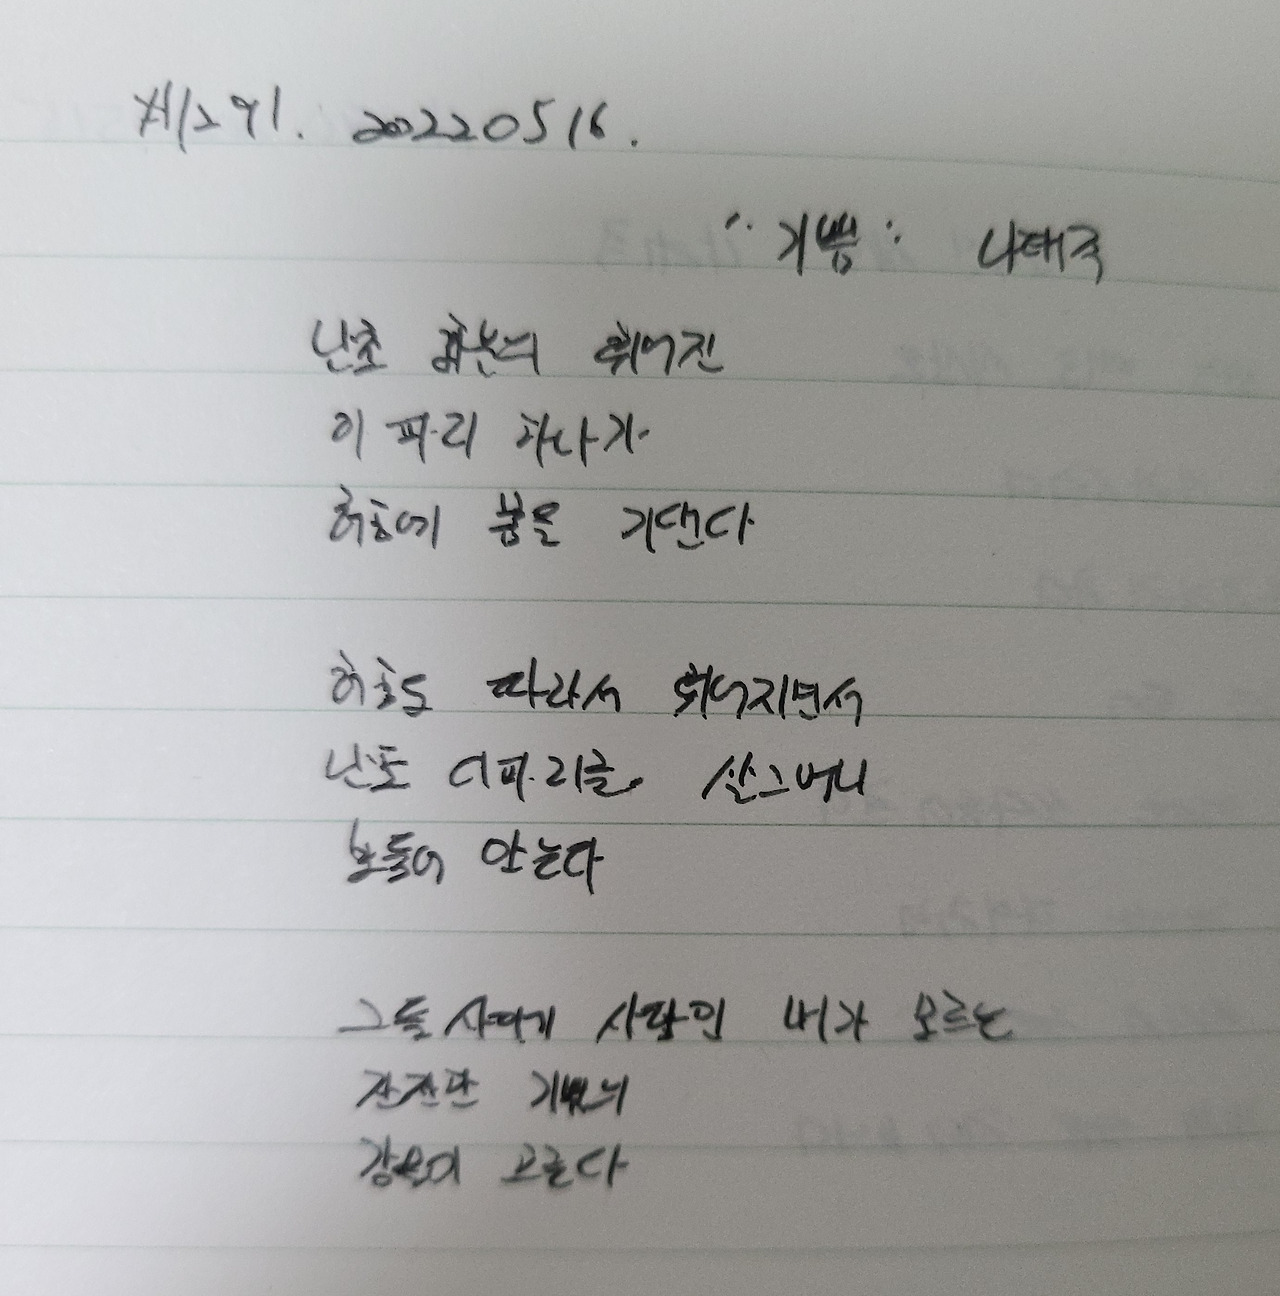 20220516.
"기쁨" 나태주
난초 화분의 휘어진
이파리 하나가
허공에 몸을 기댄다
허공도 따라서 휘어지면서
난초 이파리를 살그머니
보듬어 안는다
그들 사이에 사람인 내가 모르는
잔잔한 기쁨의
강물이 흐른다